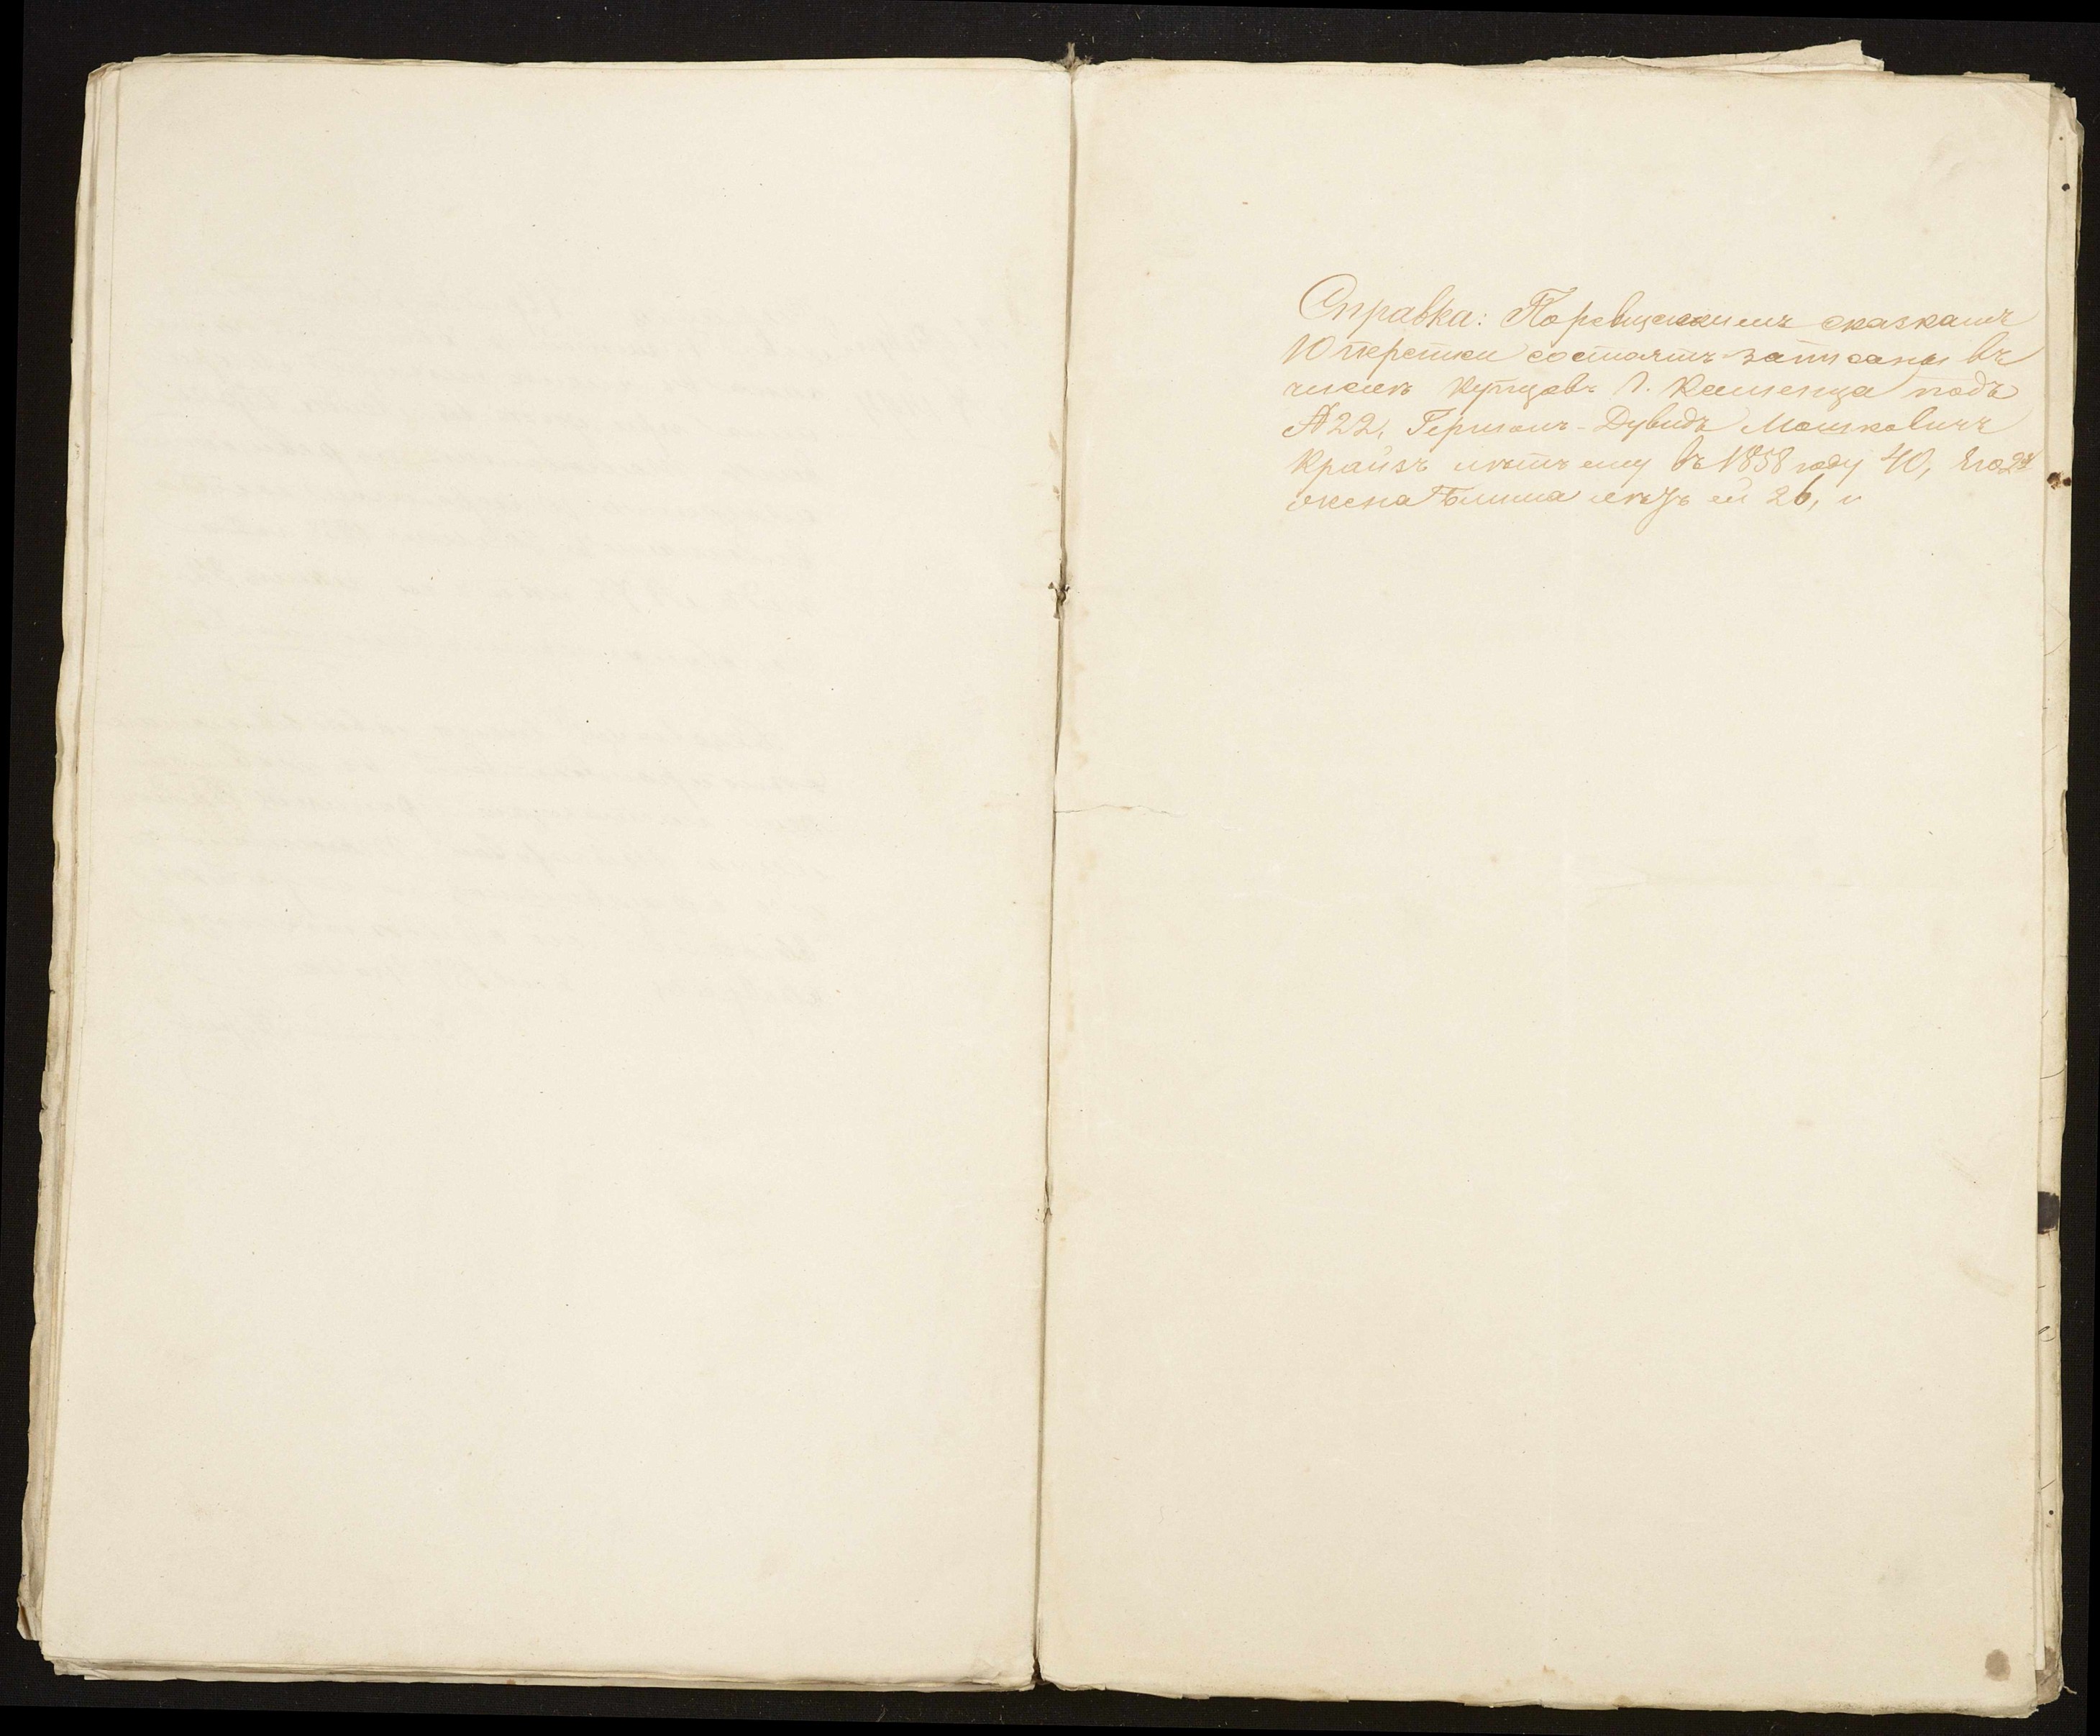 Справка: По ревизскимъ сказкамъ
10 переписи состоятъ записаны въ
числѣ купцовъ г. Каменца подъ
№ 22, Гершонъ-Дувидъ Мошковичъ
Крайзъ лѣтъ ему въ 1858 году 40, его 2я
жена лѣтъ ей 26, и